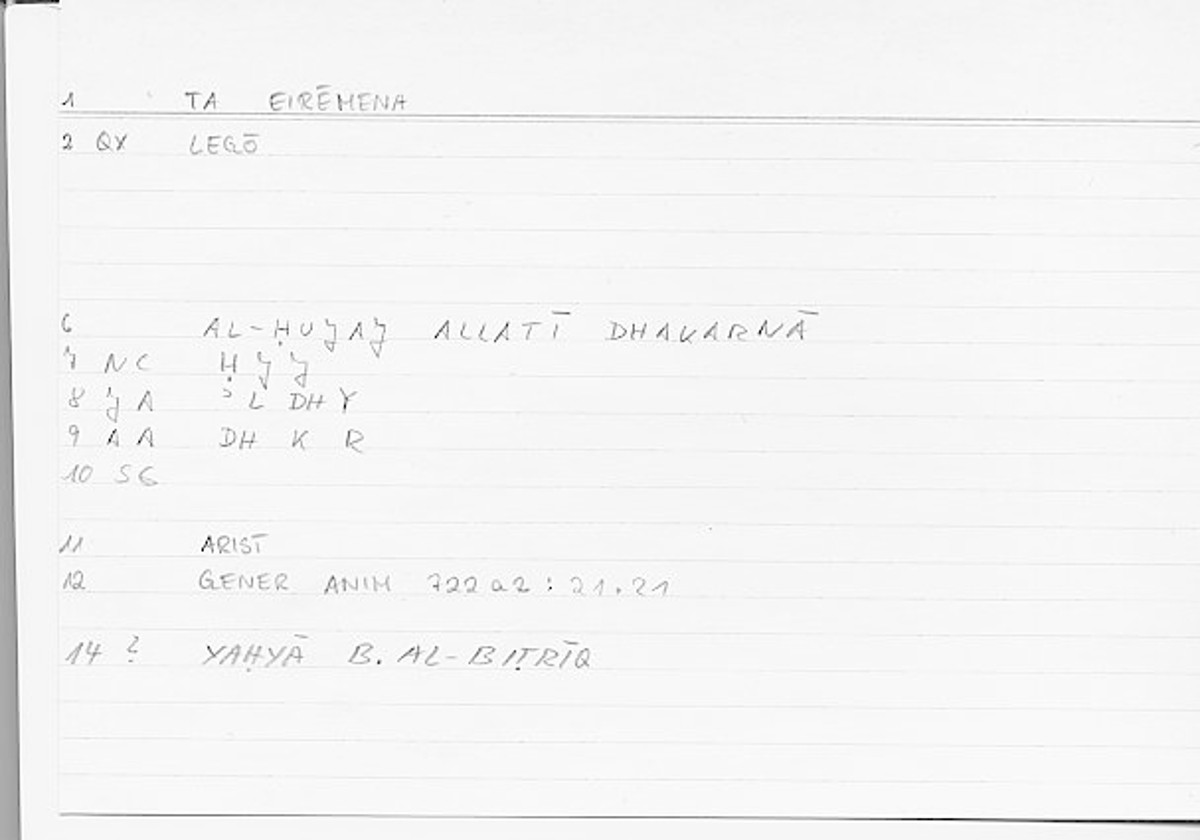 1 TA EIRĒMENA
2 QX LEGŌ
6 AL-ḤUJAJ ALLATĪ DHAKARNĀ
7 NC Ḥ J J
8 JA ʾL DH Y
9 AA DH K R
10 SG
11 ARIST
12 GENER ANIM 722a2:21.21
14 ? YAḤYĀ B. AL-BIṬRĪQ